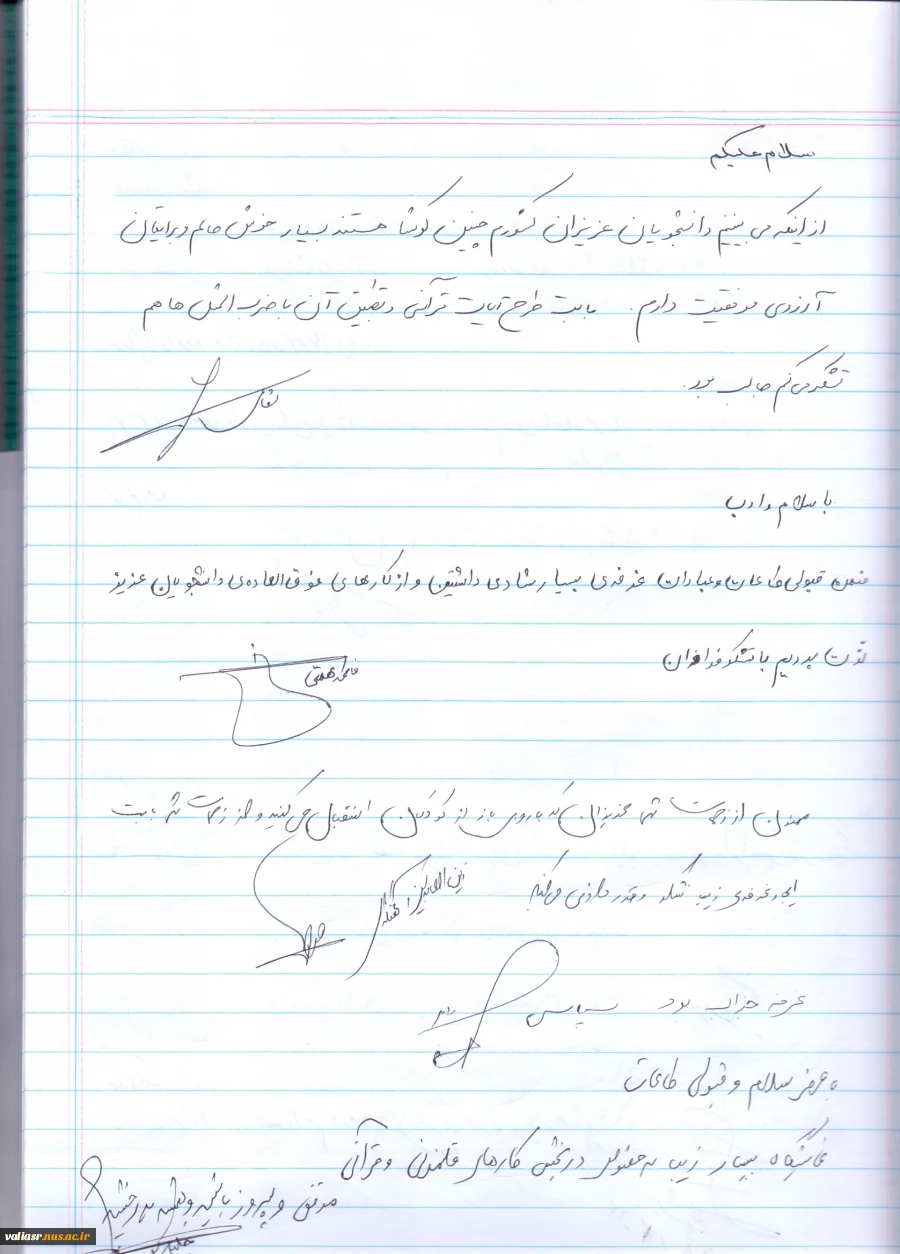 سلام علیکم
از اینکه می بینم دانشجویان عزیزان کشورم چنین کوشا هستند بسیار خوش حالم و برایتان
آرزوی موفقیت دارم. بابت طرح آیات قرآنی و تطبیق آن با ضرب المثل ها هم
تشکر می کنم جالب بود.
با سلام و ادب
ضمن قبولی طاعات و عبادات غرفه ی بسیار شادی داشتین و از کارهای فوق العاده ی دانشجویان عزیز
لذت بردیم با تشکر فراوان
فاطمه همتی
ممنون از زحمت شما عزیزان که با روی باز از کودکان استقبال می کنید و از زحمت شما بابت
ایجاد غرفه ی زیبا تشکر و قدردانی می کنم
زین العابدین
غرفه جذاب بود سپاس
با عرض سلام و قبولی طاعات
نمایشگاه بسیار زیبا به خصوص در بخش کارهای قلمزنی و قرآنی
موفق و پیروز باشید
valiasr.nus.ac.ir